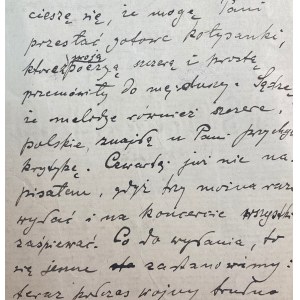 cieszę się, że mogę Pani
przesłać gotowe kołysanki,
które swoją
poezją szczerą i prostą
przemówiły do mej duszy. Sądzę,
że melodje również szczere,
polskie, znajdą u Pani przychylną
krytykę. Czwartej już nie na-
pisałem, gdyż trzy można razem
wydać i na koncercie wszystkie
zaśpiewać. Co do wydania, to
się jeszcze zastanowimy:
teraz podczas wojny trudno